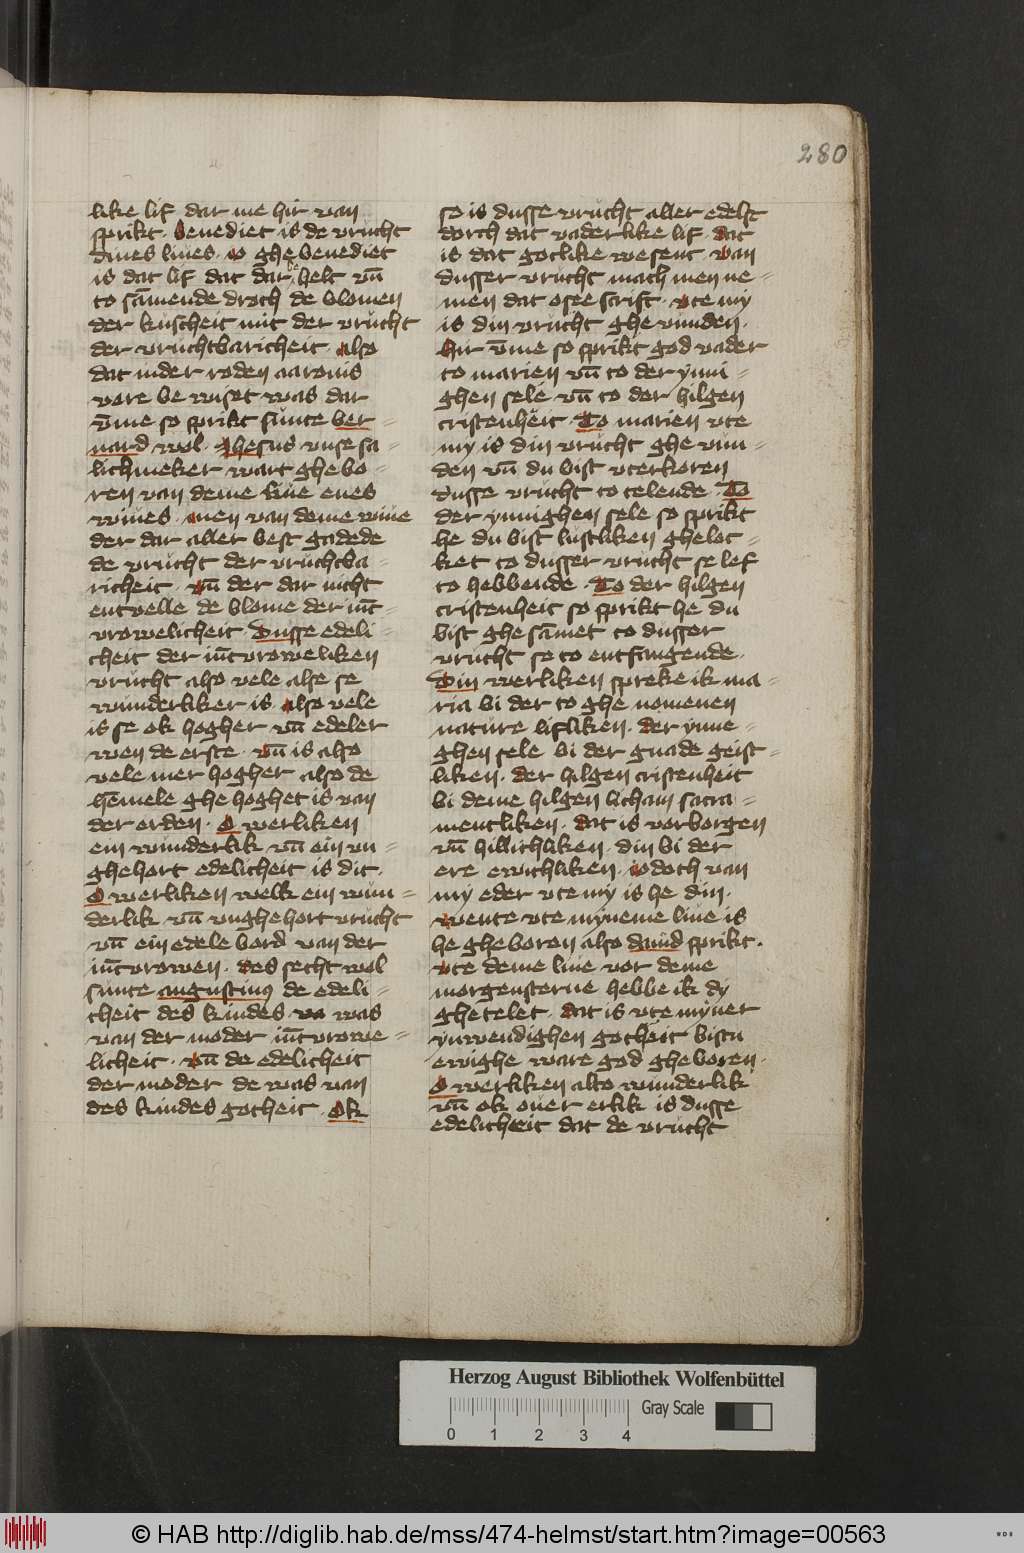 280
like lif dar me hir van
sprikt. benediet is de vrucht
dines liues. wo ghe benediet
is dat lif dat dar helt vn̄
to sāmende droch de blomen
der kuscheit mit der vrucht
der vruchtbaricheit. also
dat in der roden aaronis
vore be wiset was dar
v̄me so sprikt sunte ber=
nard wol. Jhesus vnse sa=
lichmeker wart ghe bo=
ren van deme liue enes
wiues. men van deme wiue
der dar aller best godede
de vrucht der vruchtba=
richeit. vn̄ der dar nicht
entvelle de blome der iūc=
vrowelicheit. Dusse edeli=
cheit der iūcvroweliken
vrucht also vele alse se
wunderliker is. also vele
is se ok hogher vn̄ edeler
wen de erste. vn̄ is also
vele mer hogher also de
hēmele ghe hoghet is van
der erden. O werliken
ein wunderlik vn̄ ein vn=
ghehort edelicheit is dit.
O werliken welk ein wun=
derlik vn̄ vnghehort vrucht
vn̄ ein edele bord van der
iūcvrowen. des secht wol
sunte augustinus de edeli=
cheit des kindes was
van der moder iūcvrowe=
licheit. vn̄ de edelicheit
der moder de was van
des kindes gotheit. Ok
so is dusse vrucht aller edelst
dorch dat vaderlike lif. dat
is dat gotlike wesent. van
dusser vrucht mach men ne=
men dat osee scrift. vte my
is din vrucht ghe vunden.
hir v̄me so sprikt god vader
to marien vn̄ to der ynni=
ghen sele vn̄ to der hilgen
cristenheit. To marien vte
my is din vrucht ghe vun=
den vn̄ du bist vterkoren
dusse vrucht to telende. To
der ynnighen sele so sprikt
he du bist lustliken gheloc=
ket to dusser vrucht se lef
to hebbende. To der hilgen
cristenheit so sprikt he du
bist ghe sāmet to dusser
vrucht se to entfangende.
Din werliken spreke ik ma=
ria bi der to ghe nomenen
nature lifliken. der ynne=
ghen sele bi der gnade geist=
liken. der hilgen cristenheit
bi deme hilgen licham sacra=
mentliken. dat is vorborgen
vn̄ hillichliken. din bi der
ere ewichliken. iodoch van
my eder vte my is he din.
wente vte myneme liue is
he gheboren also dauid sprikt.
vte deme liue vor deme
morgensterne hebbe ik dy
ghetelet. dat is vte myner
ynwendighen gotheit bistu
ewighe ware god gheboren.
O werliken alto wunderlik
vn̄ ok ouer erlik is dusse
edelicheit dat de vrucht
Herzog August Bibliothek Wolfenbüttel
Gray Scale
0 1 2 3 4
© HAB http://diglib.hab.de/mss/474-helmst/start.htm?image=00563
WDB